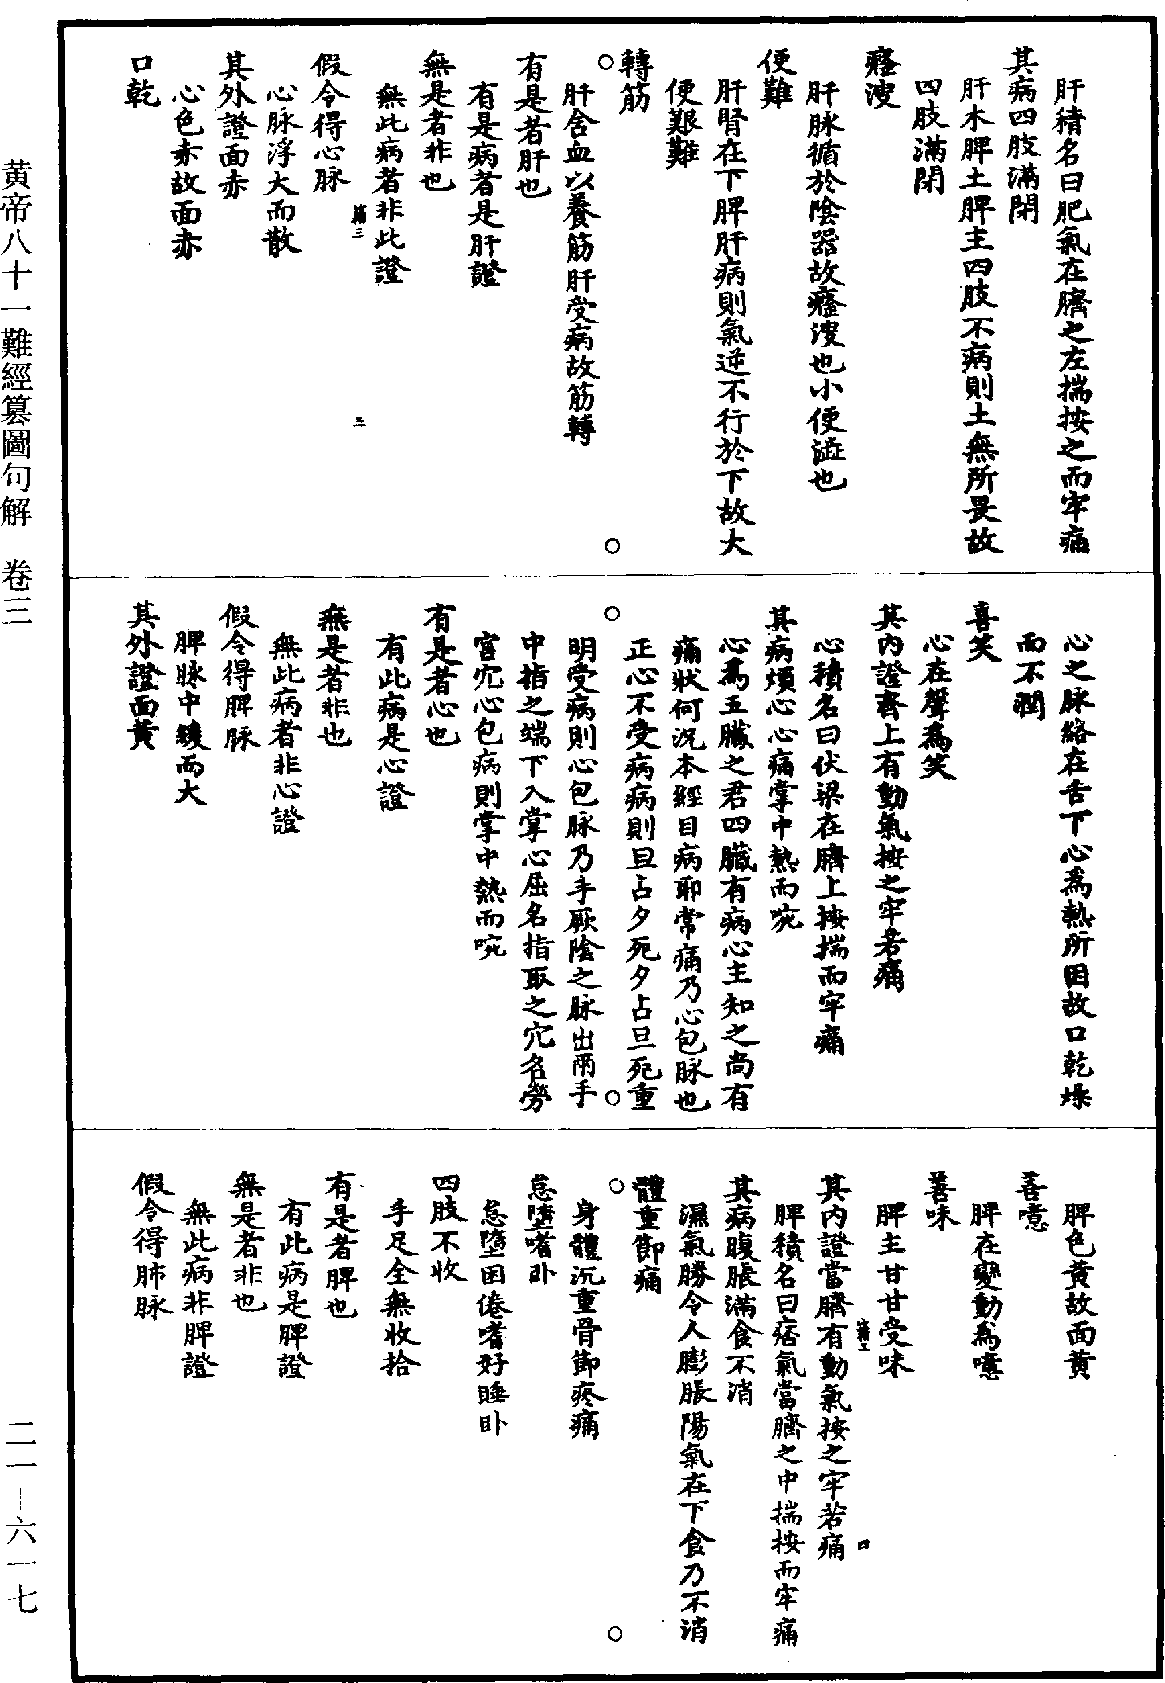 肝積名曰肥氣在臍之左揣按之而牢痛
其病四肢滿閉
肝木脾土脾主四肢不病則土無所畏故
四肢滿閉
癃溲
肝脉循於陰器故癃溲也小便澁也
便難
肝腎在下脾肝病則氣逆不行於下故大
便艱難
轉筋
肝含血以養筋肝受病故筋轉
有是者肝也
有是病者是肝證
無是者非也
無此病者非此證
假令得心脉
心脉浮大而散
其外證面赤
心色赤故面赤
口乾
心之脉絡在舌下心爲熱所困故口乾燥
而不潤
喜笑
心在聲爲笑
其內證臍上有動氣按之牢若痛
心積名曰伏梁在臍上按揣而牢痛
其病煩心心痛掌中熱而啘
心爲五臟之君四臟有病心主知之尚有
痛狀何況本經目病耶常痛乃心包脉也
正心不受病病則旦占夕死夕占旦死重
明受病則心包脉乃手厥陰之脉出兩手
中指之端下入掌心屈名指取之穴名勞
宮穴心包病則掌中熱而啘
有是者心也
有此病是心證
無是者非也
無此病者非心證
假令得脾脉
脾脉中緩而大
其外證面黃
脾色黃故面黃
善噫
脾在變動爲噫
善味
脾主甘甘受味
其內證當臍有動氣按之牢若痛
脾積名曰痞氣當臍之中揣按而牢痛
其病腹脹滿食不消
濕氣勝令人膨脹陽氣在下食乃不消
體重節痛
身體沉重骨節疼痛
怠墮嗜卧
怠墮困倦嗜好睡卧
四肢不收
手足全無收拾
有是者脾也
有此病是脾證
無是者非也
無此病非脾證
假令得肺脉
黄帝八十一難經纂圖句解　卷三
二一—六一七